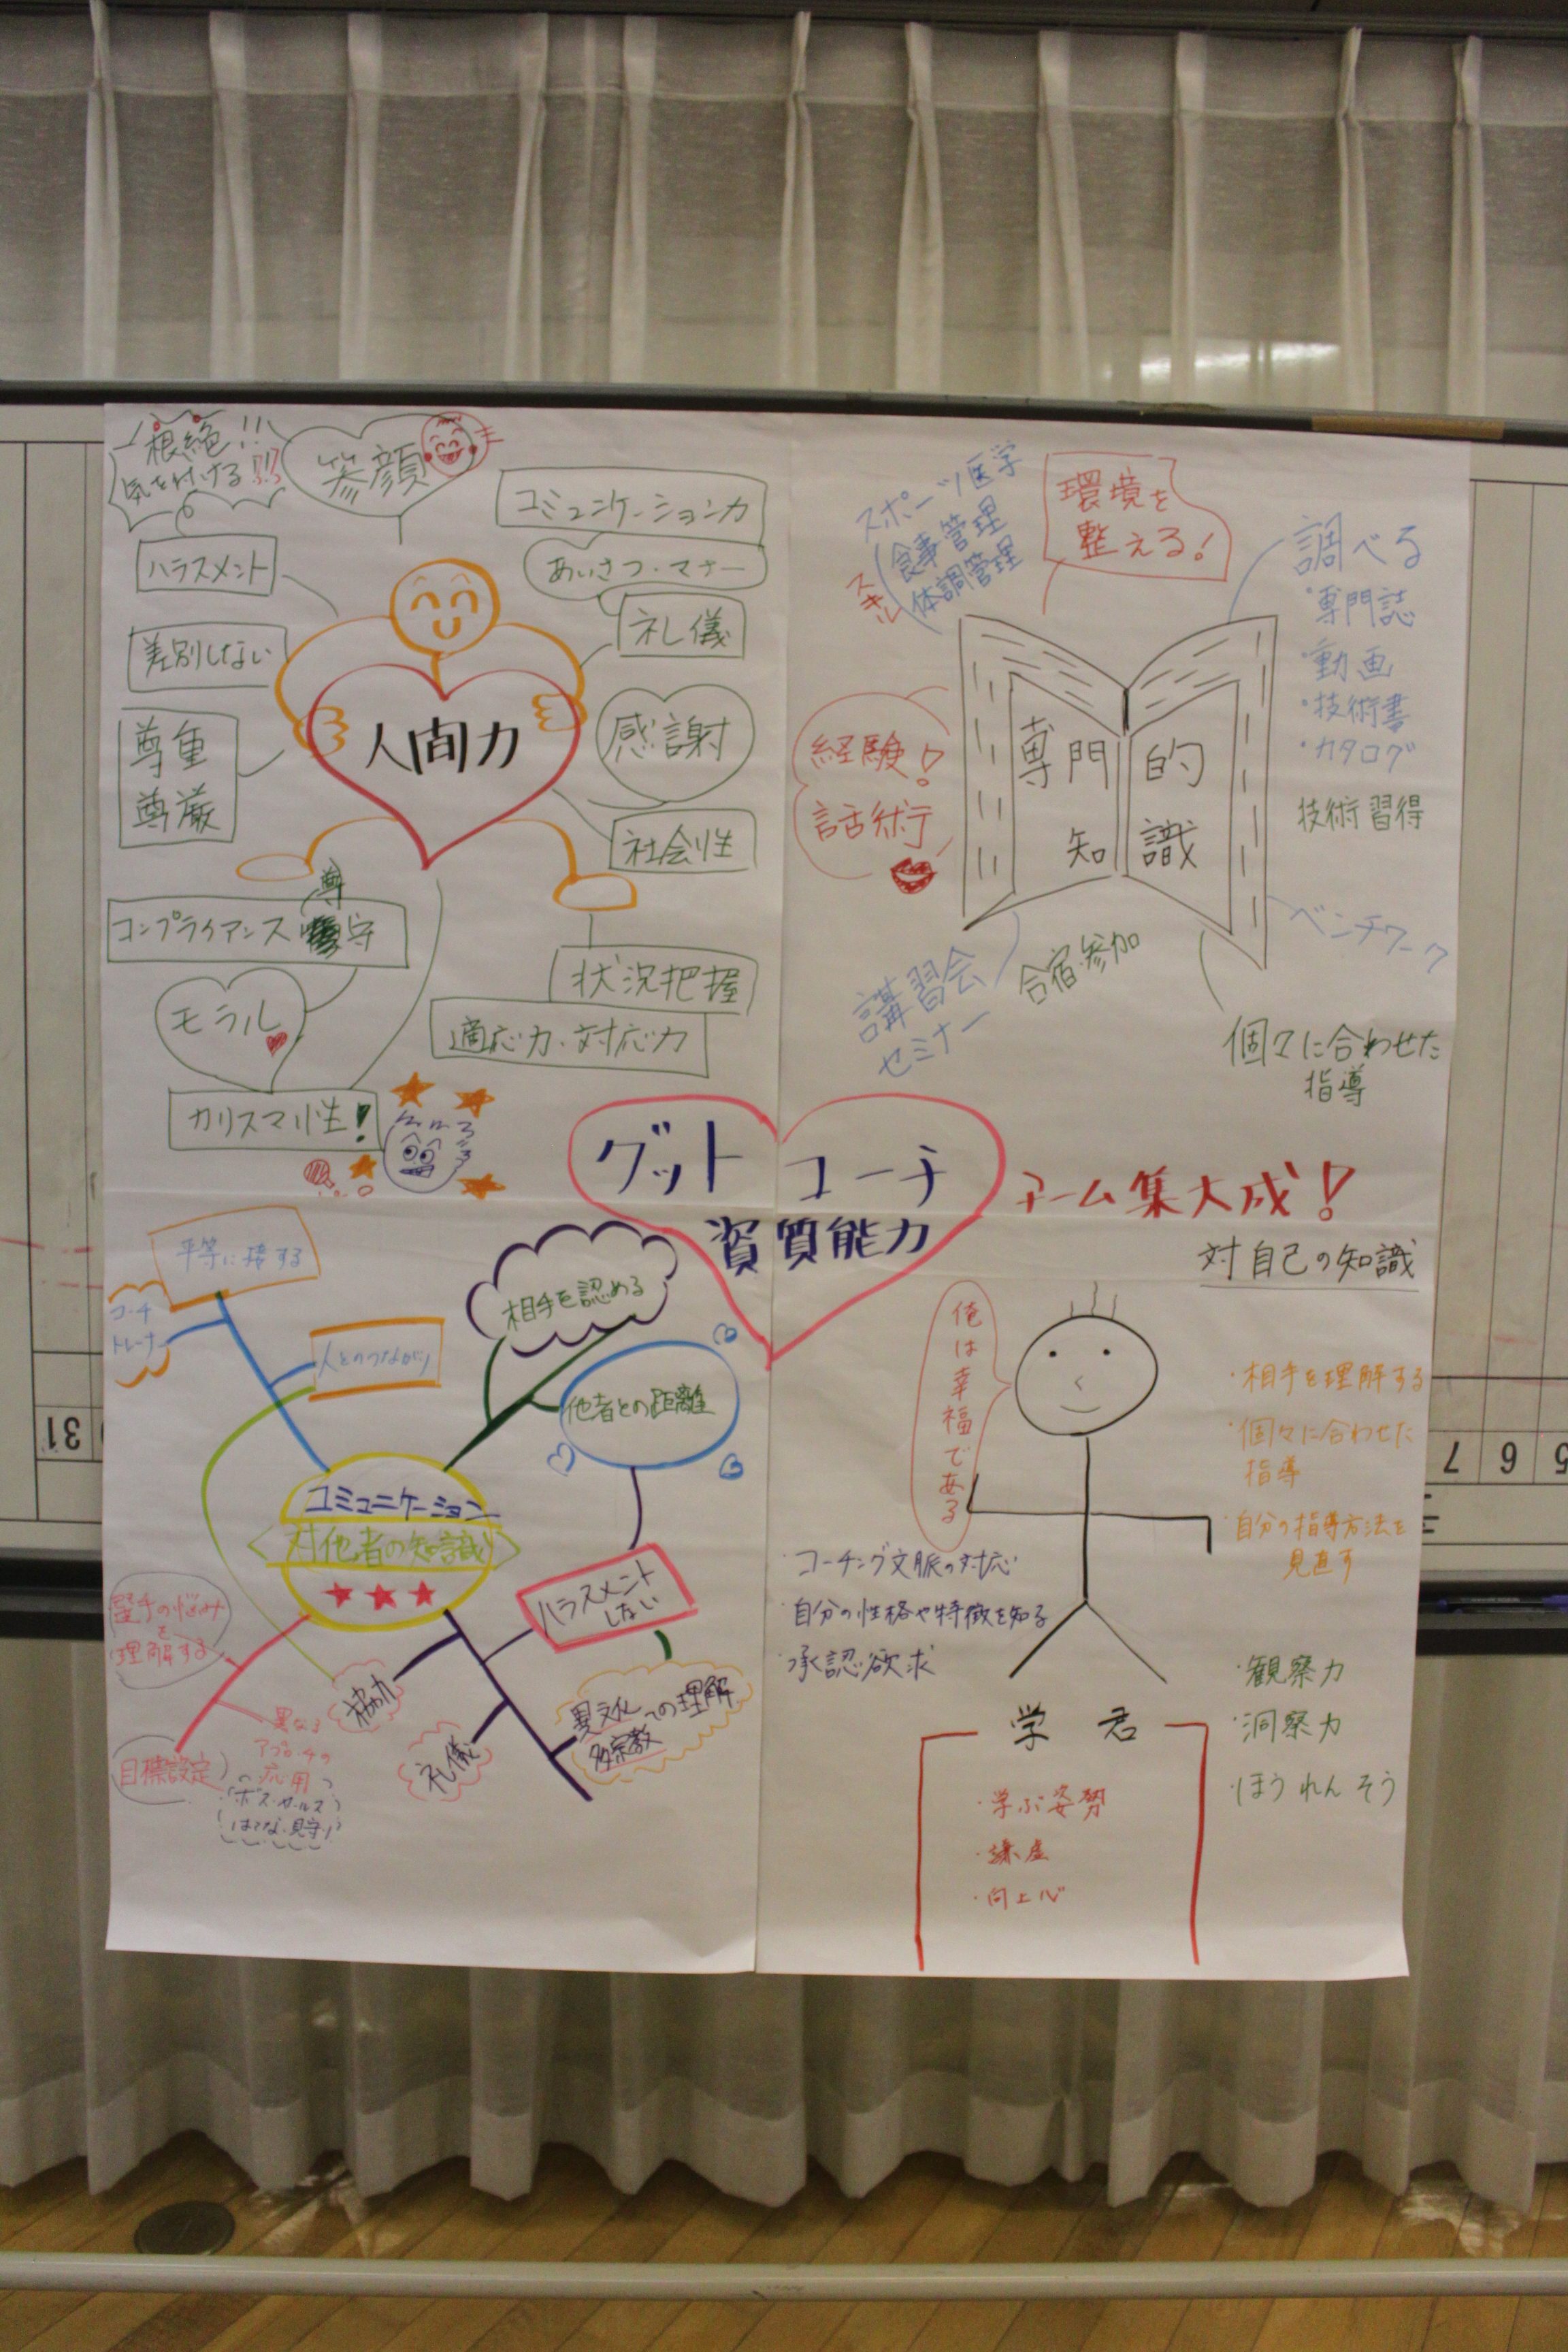 根絶!!
気を付ける!!
笑顔
ハラスメント
コミュニケーション力
あいさつ・マナー
礼儀
差別しない
人間力
感謝
尊重
尊厳
社会性
尊
コンプライアンス 守
モラル
状況把握
適応力・対応力
カリスマ性!
スポーツ医学
食事管理
体調管理
スキル
環境を
整える!
調べる
・専門誌
・動画
・技術書
・カタログ
技術習得
経験!
話術
専門的
知識
ベンチワーク
講習会
セミナー
合宿参加
個々に合わせた
指導
グット コーチ
資質能力
チーム集大成!
平等に接する
コーチ
トレーナー
人とのつながり
相手を認める
他者との距離
コミュニケーション
対他者の知識
ハラスメント
しない
選手の悩み
を
理解する
協力
礼儀
異文化への理解
多宗教
目標設定
・異なる
アプローチの
応用
対自己の知識
俺は幸福である
・相手を理解する
・個々に合わせた
指導
・自分の指導方法を
見直す
・コーチング文脈の対応
・自分の性格や特徴を知る
・承認欲求
学 君
・学ぶ姿勢
・謙虚
・向上心
・観察力
・洞察力
・ほうれんそう
31
7
6
5